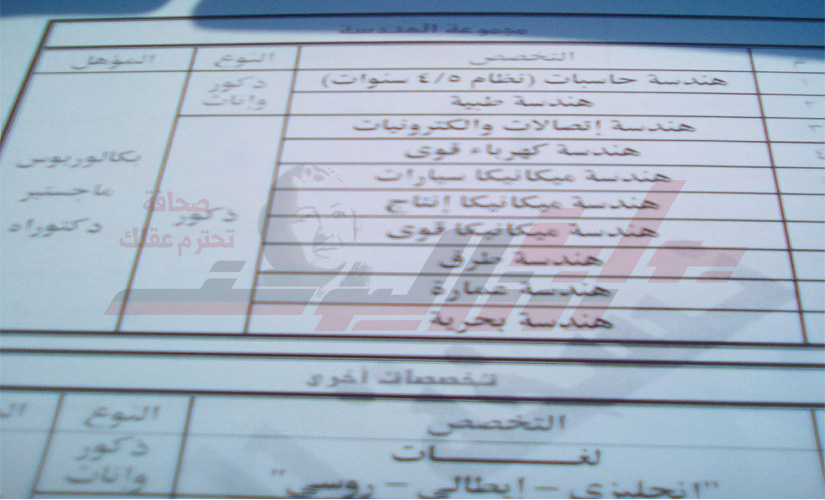 مجموعة الهندسة
م التخصص النوع المؤهل
١ هندسة حاسبات (نظام ٤/٥ سنوات) ذكور وإناث
٢ هندسة طبية
٣ هندسة إتصالات والكترونيات
٤ هندسة كهرباء قوى
هندسة ميكانيكا سيارات
هندسة ميكانيكا إنتاج
هندسة ميكانيكا قوى
هندسة طرق
هندسة عمارة
هندسة بحرية
ذكور
بكالوريوس
ماجستير
دكتوراه
صحافة
تحترم عقلك
تخصصات أخرى
التخصص النوع
لغــــات ذكور
"إنجليزي - إيطالي - روسي" وإناث